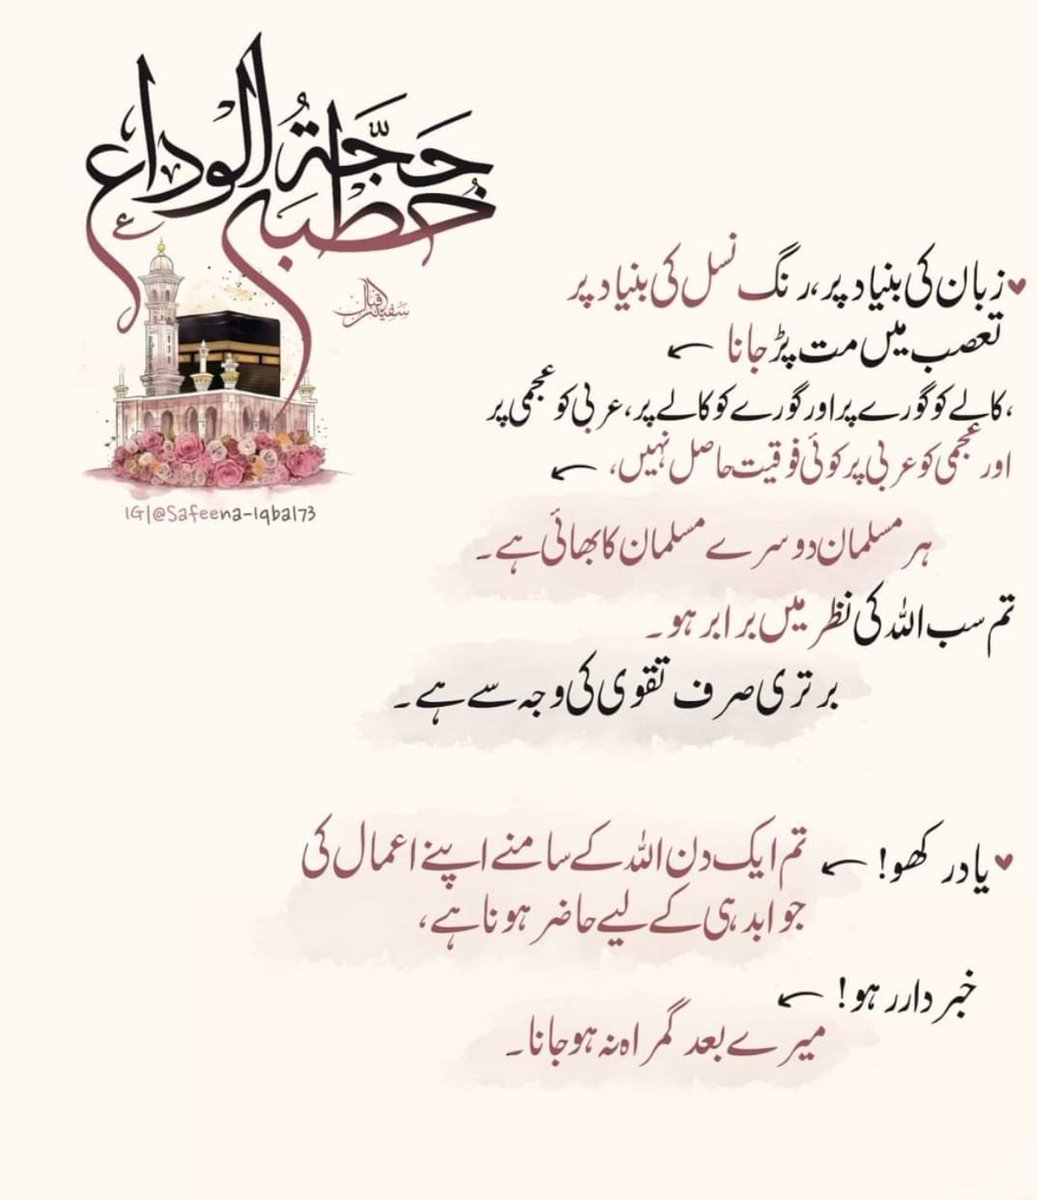 خطبہ حجۃ الوداع
سفینہ اقبال
IG|@Safeena-Iqbal73
زبان کی بنیاد پر، رنگ نسل کی بنیاد پر
تعصب میں مت پڑ جانا
،کالے کو گورے پر اور گورے کو کالے پر، عربی کو عجمی پر
اور عجمی کو عربی پر کوئی فوقیت حاصل نہیں،
ہر مسلمان دوسرے مسلمان کا بھائی ہے۔
تم سب اللہ کی نظر میں برابر ہو۔
برتری صرف تقوی کی وجہ سے ہے۔
یاد رکھو! تم ایک دن اللہ کے سامنے اپنے اعمال کی
جوابدہی کے لیے حاضر ہونا ہے،
خبردار رہو!
میرے بعد گمراہ نہ ہو جانا۔